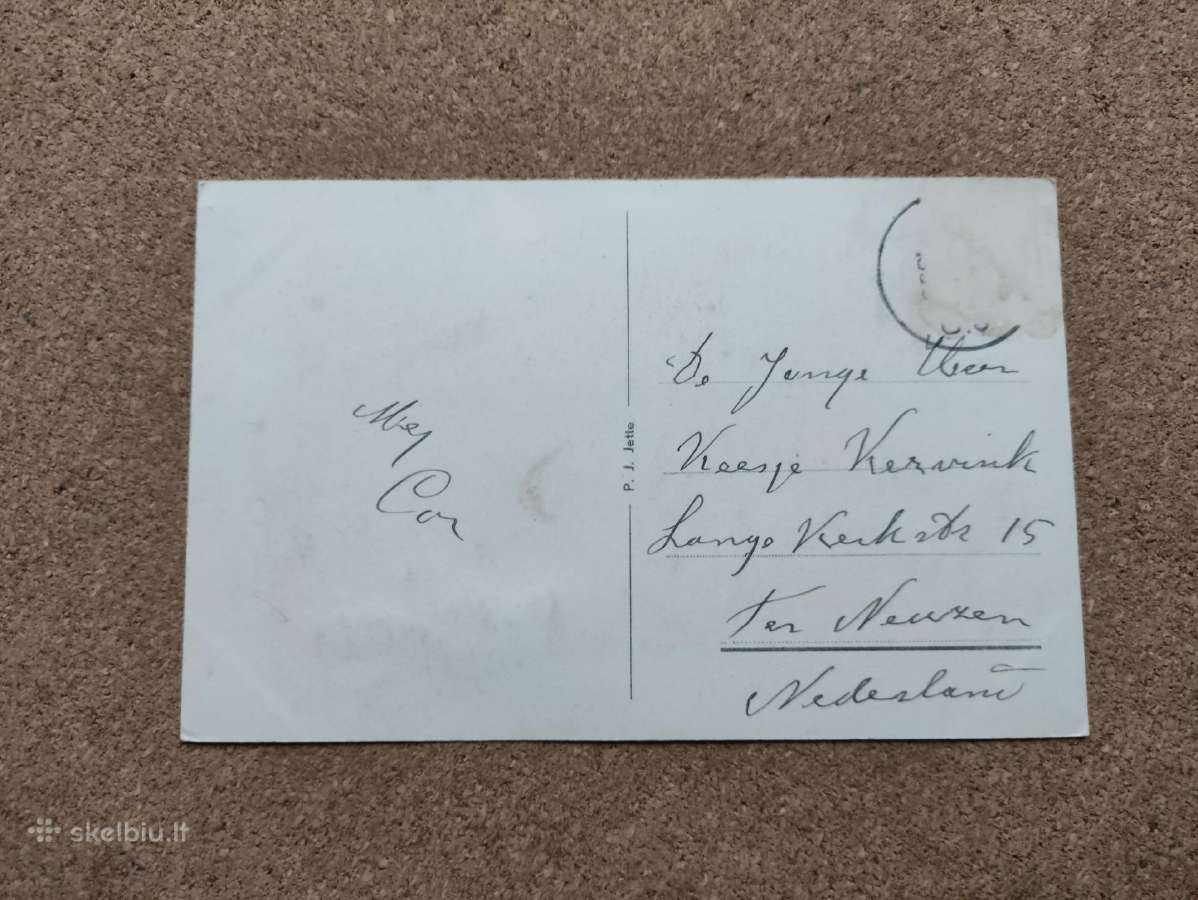 Cor
P. J. Jette
De Jonge Heer
Keesje Kervink
Lange Kerkstr 15
Ter Neuzen
Nederland
skelbiu.lt